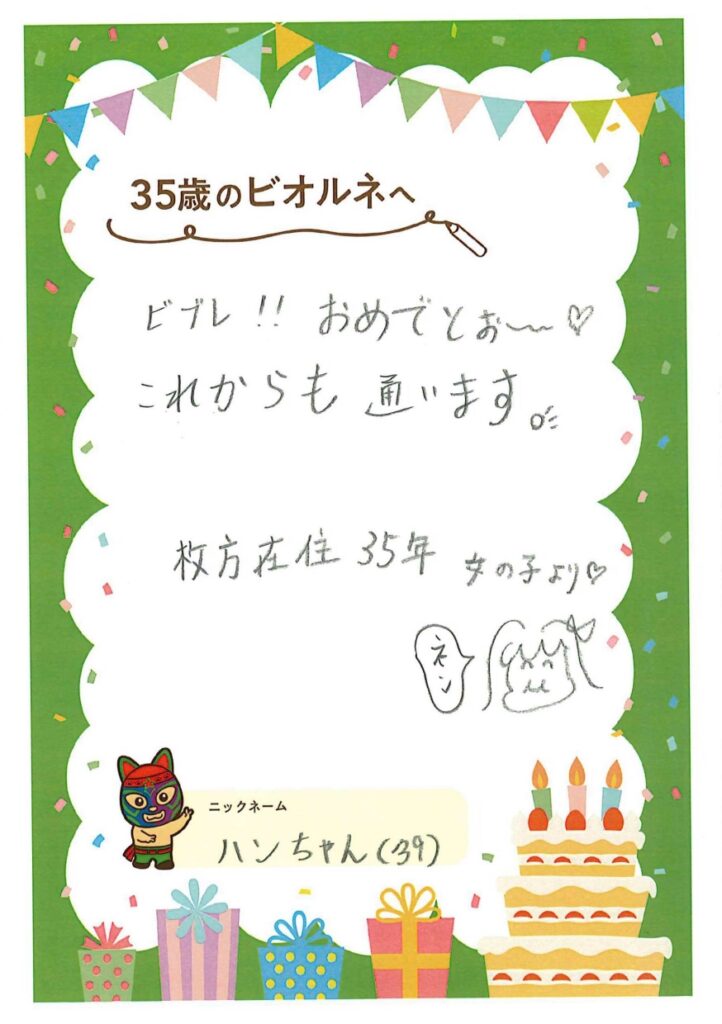 35歳のビオルネへ
ビブレ!! おめでとぉ〜〜♡
これからも 通います。
枚方在住 35年 女の子より♡
ネン
ニックネーム
ハンちゃん(39)